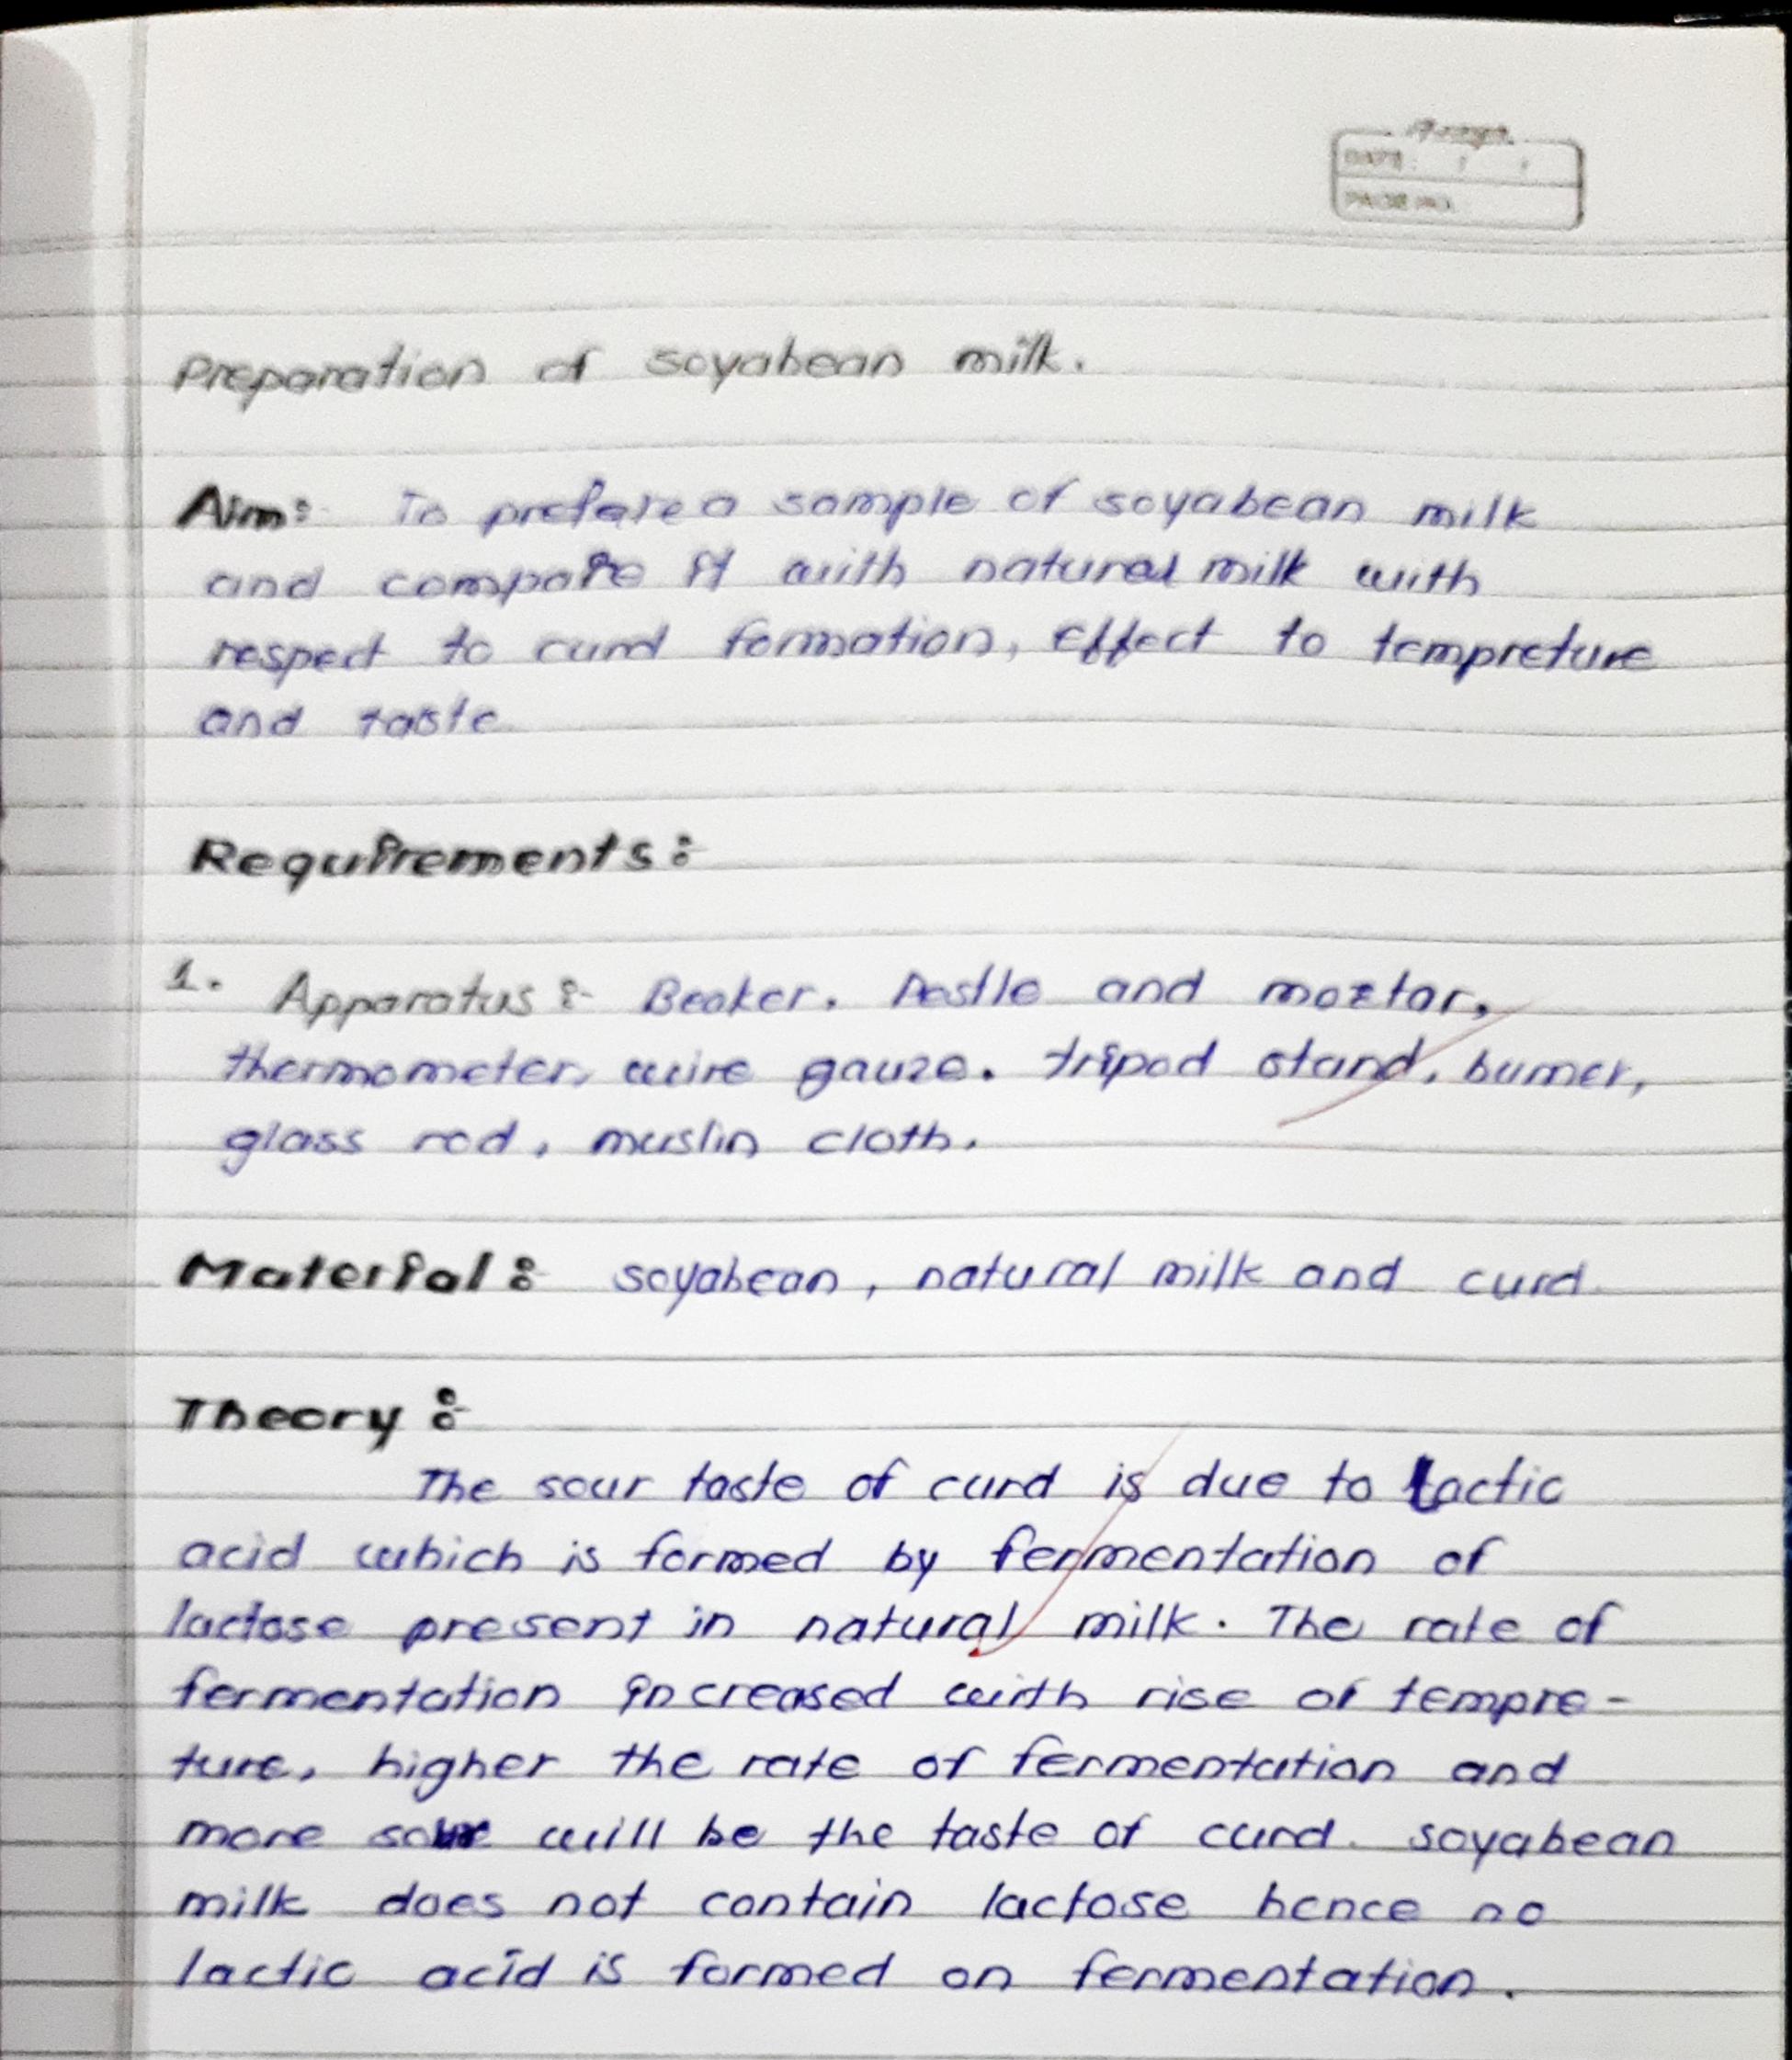 DATE: / /
PAGE NO.
Preparation of soyabean milk.
Aim:- To prefare a sample of soyabean milk
and compare it with natural milk with
respect to curd formation, Effect to tempreture
and taste
Requirements:-
1. Apparatus:- Beaker, Pestle and moztar,
thermometer, wire gauze, tripod stand, burner,
glass rod, muslin cloth.
Material:- soyabean, natural milk and curd
Theory:-
The sour taste of curd is due to Lactic
acid which is formed by fermentation of
lactose present in natural milk. The rate of
fermentation increased with rise of tempre-
ture, higher the rate of fermentation and
more sour will be the taste of curd. soyabean
milk does not contain lactose hence no
lactic acid is formed on fermentation.